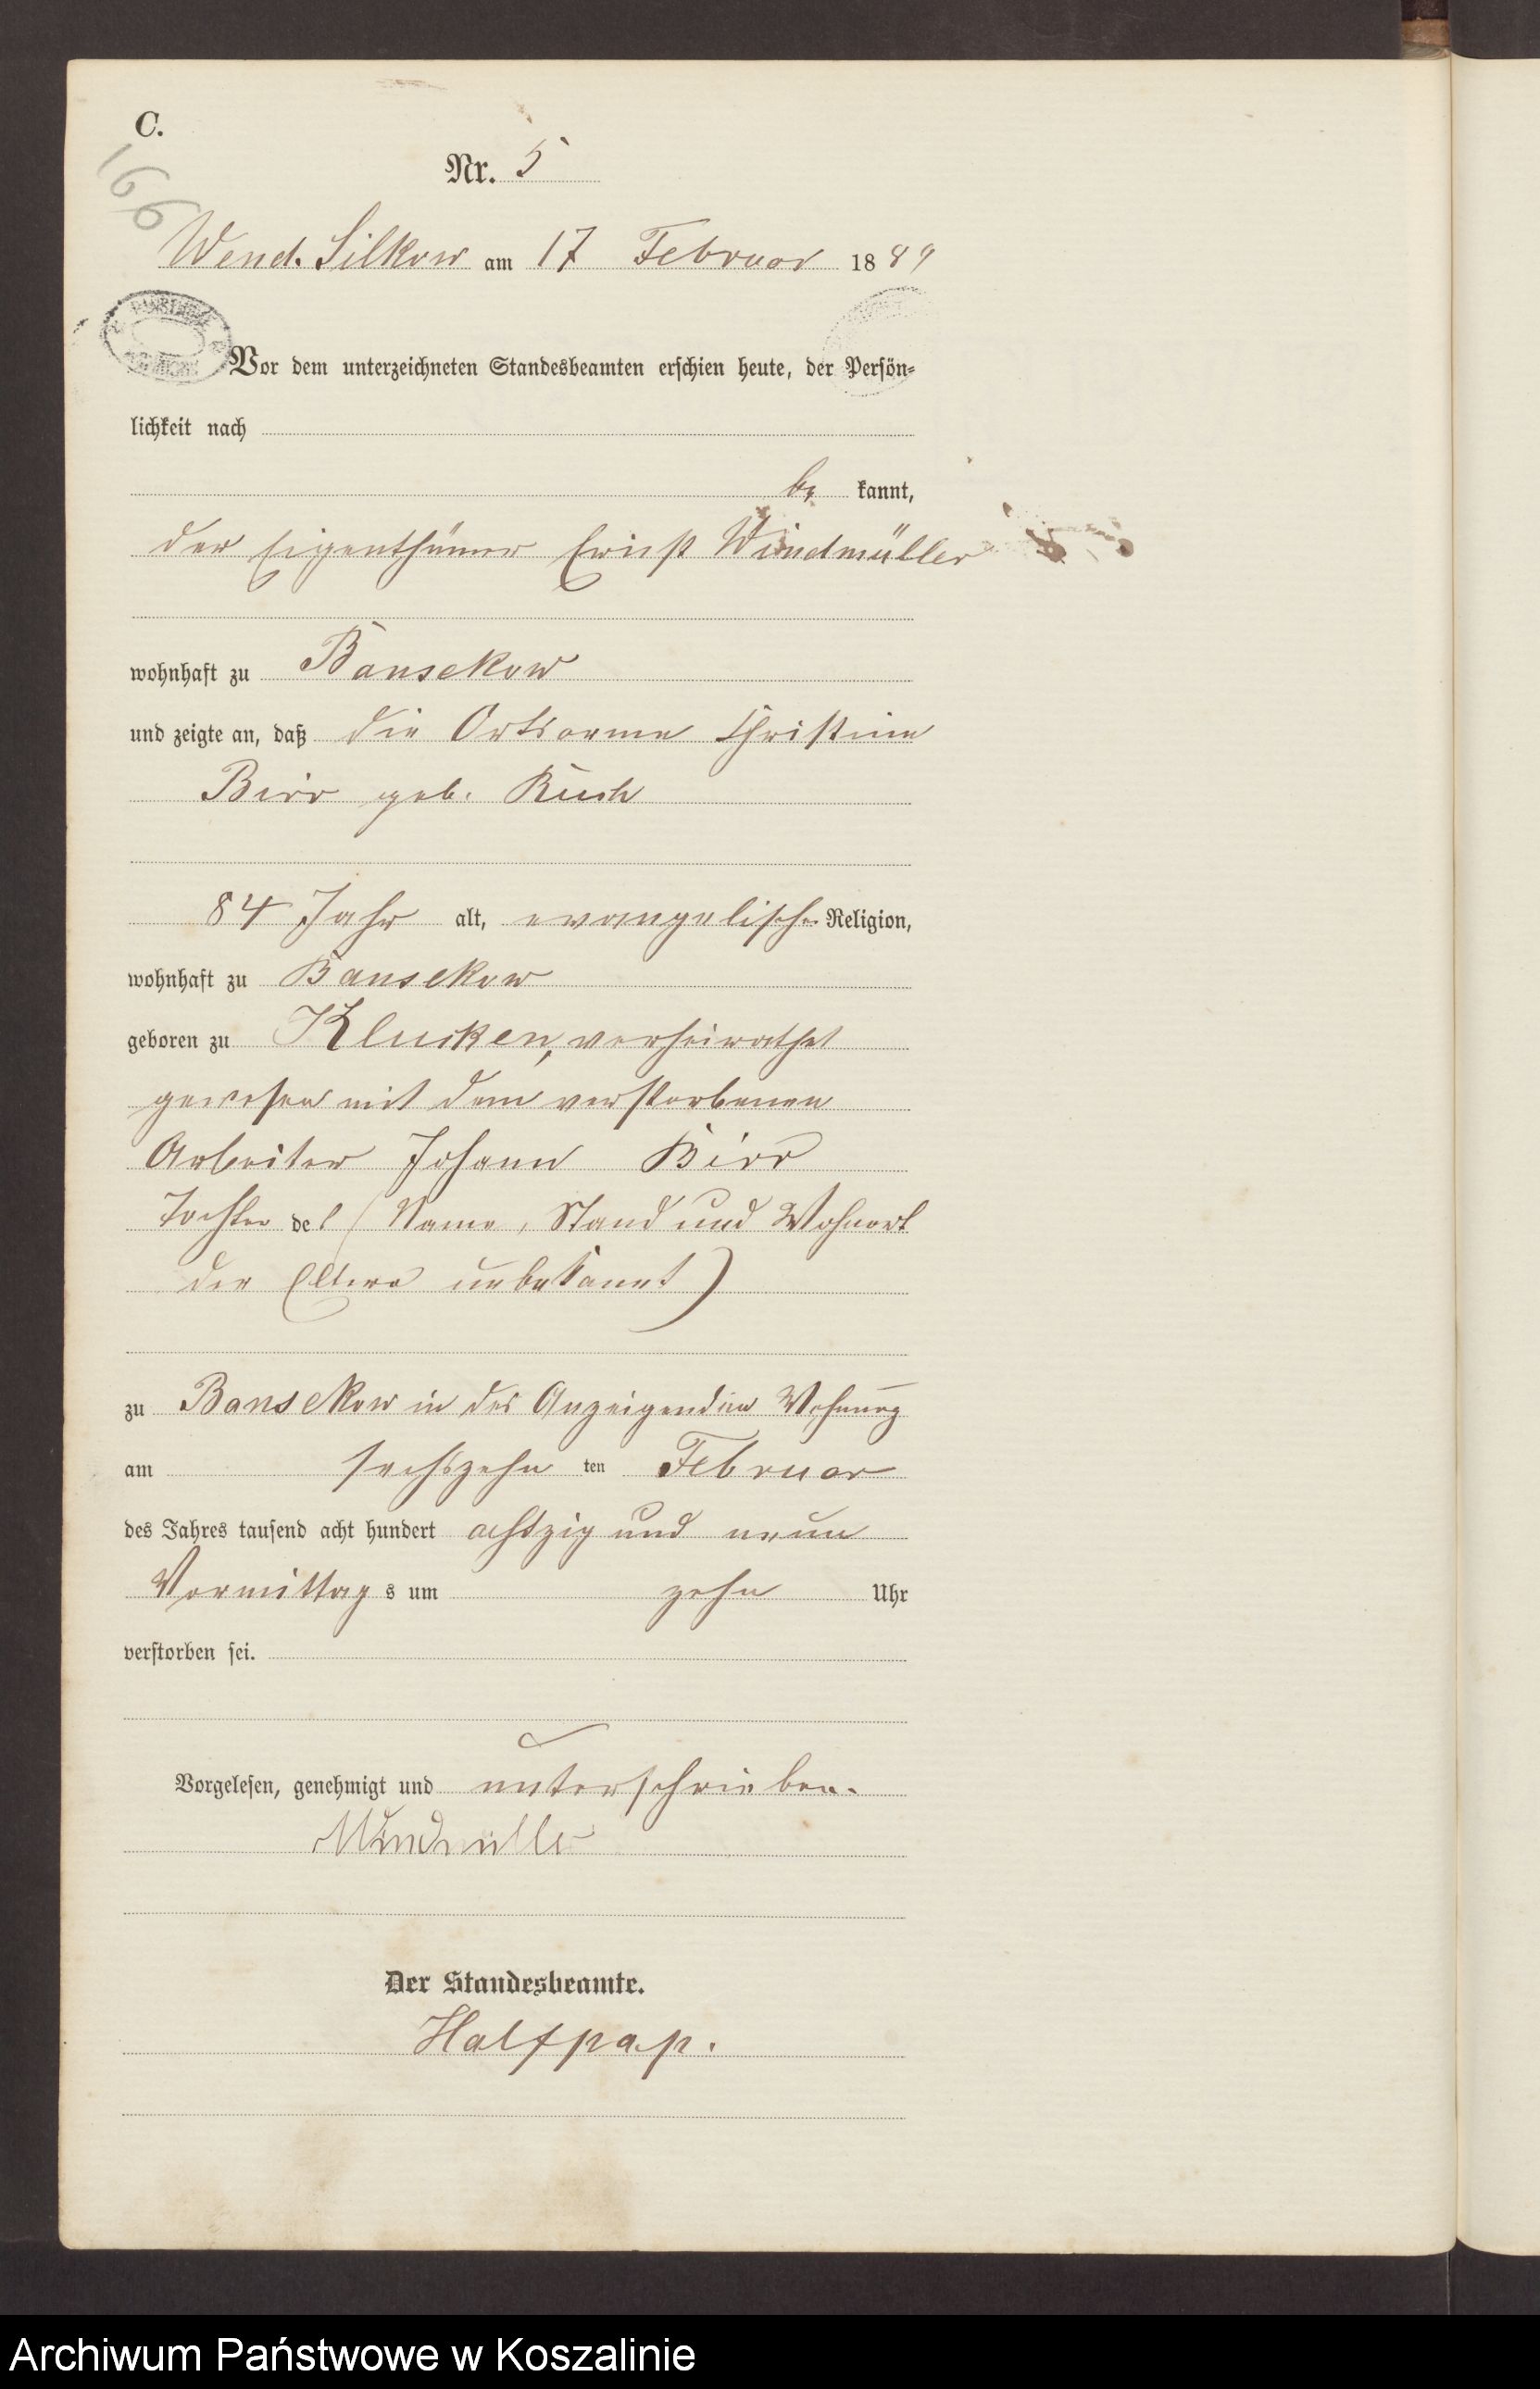 C.
166
Nr. 5
Wend. Silkow am 17 Februar 1889
Vor dem unterzeichneten Standesbeamten erschien heute, der Persön-
lichkeit nach
be kannt,
der Eigenthümer Ernst Windmüller
wohnhaft zu Bansekow
und zeigte an, daß die Ortsarme Christine
Birr geb. Kusch
84 Jahr alt, evangelischer Religion,
wohnhaft zu Bansekow
geboren zu Klucken, verheirathet
gewesen mit dem verstorbenen
Arbeiter Johann Birr
Tochter der (Name, Stand und Wohnort
der Eltern unbekannt)
zu Bansekow in des Anzeigenden Wohnung
am sechszehn ten Februar
des Jahres tausend acht hundert achtzig und neun
Vormittag s um zehn Uhr
verstorben sei.
Vorgelesen, genehmigt und unterschrieben.
Windmüller
Der Standesbeamte.
Halfpap.
Archiwum Państwowe w Koszalinie